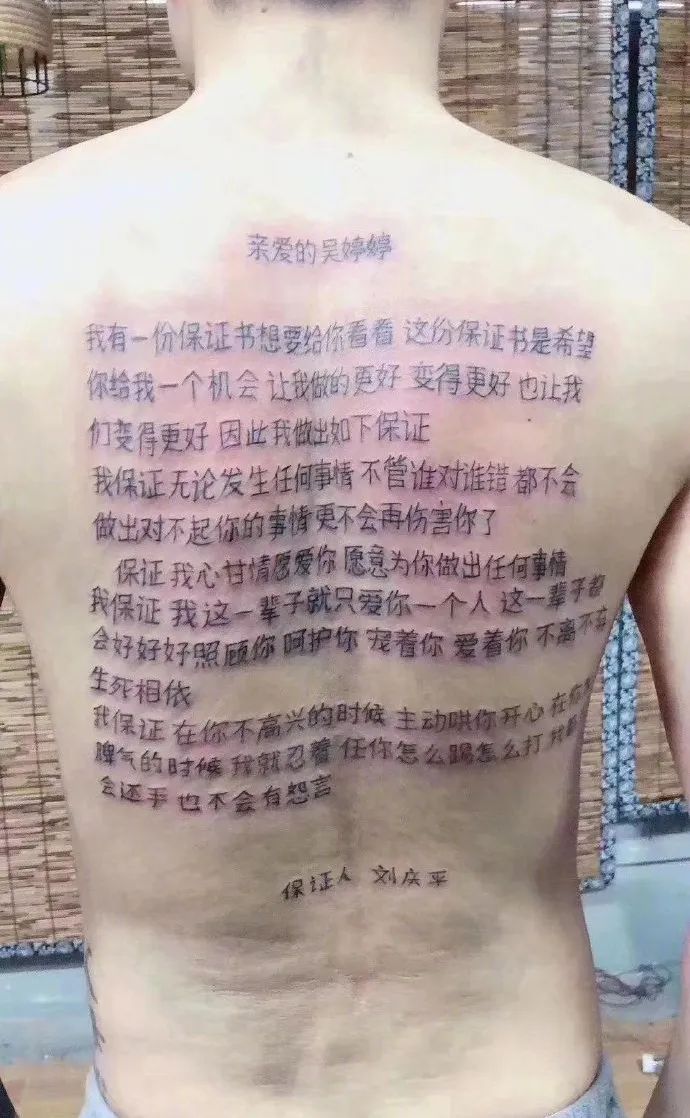 亲爱的吴婷婷
我有一份保证书想要给你看看 这份保证书是希望
你给我一个机会 让我做的更好 变得更好 也让我
们变得更好 因此我做出如下保证
我保证无论发生任何事情 不管谁对谁错 都不会
做出对不起你的事情更不会再伤害你了
保证我心甘情愿爱你 愿意为你做出任何事情
我保证 我这一辈子就只爱你一个人 这一辈子都
会好好好照顾你 呵护你 宠着你 爱着你 不离不
生死相依
我保证 在你不高兴的时候 主动哄你开心 在你
脾气的时候 我就忍着 任你怎么踢怎么打
会还手 也不会有怨言
保证人 刘庆平